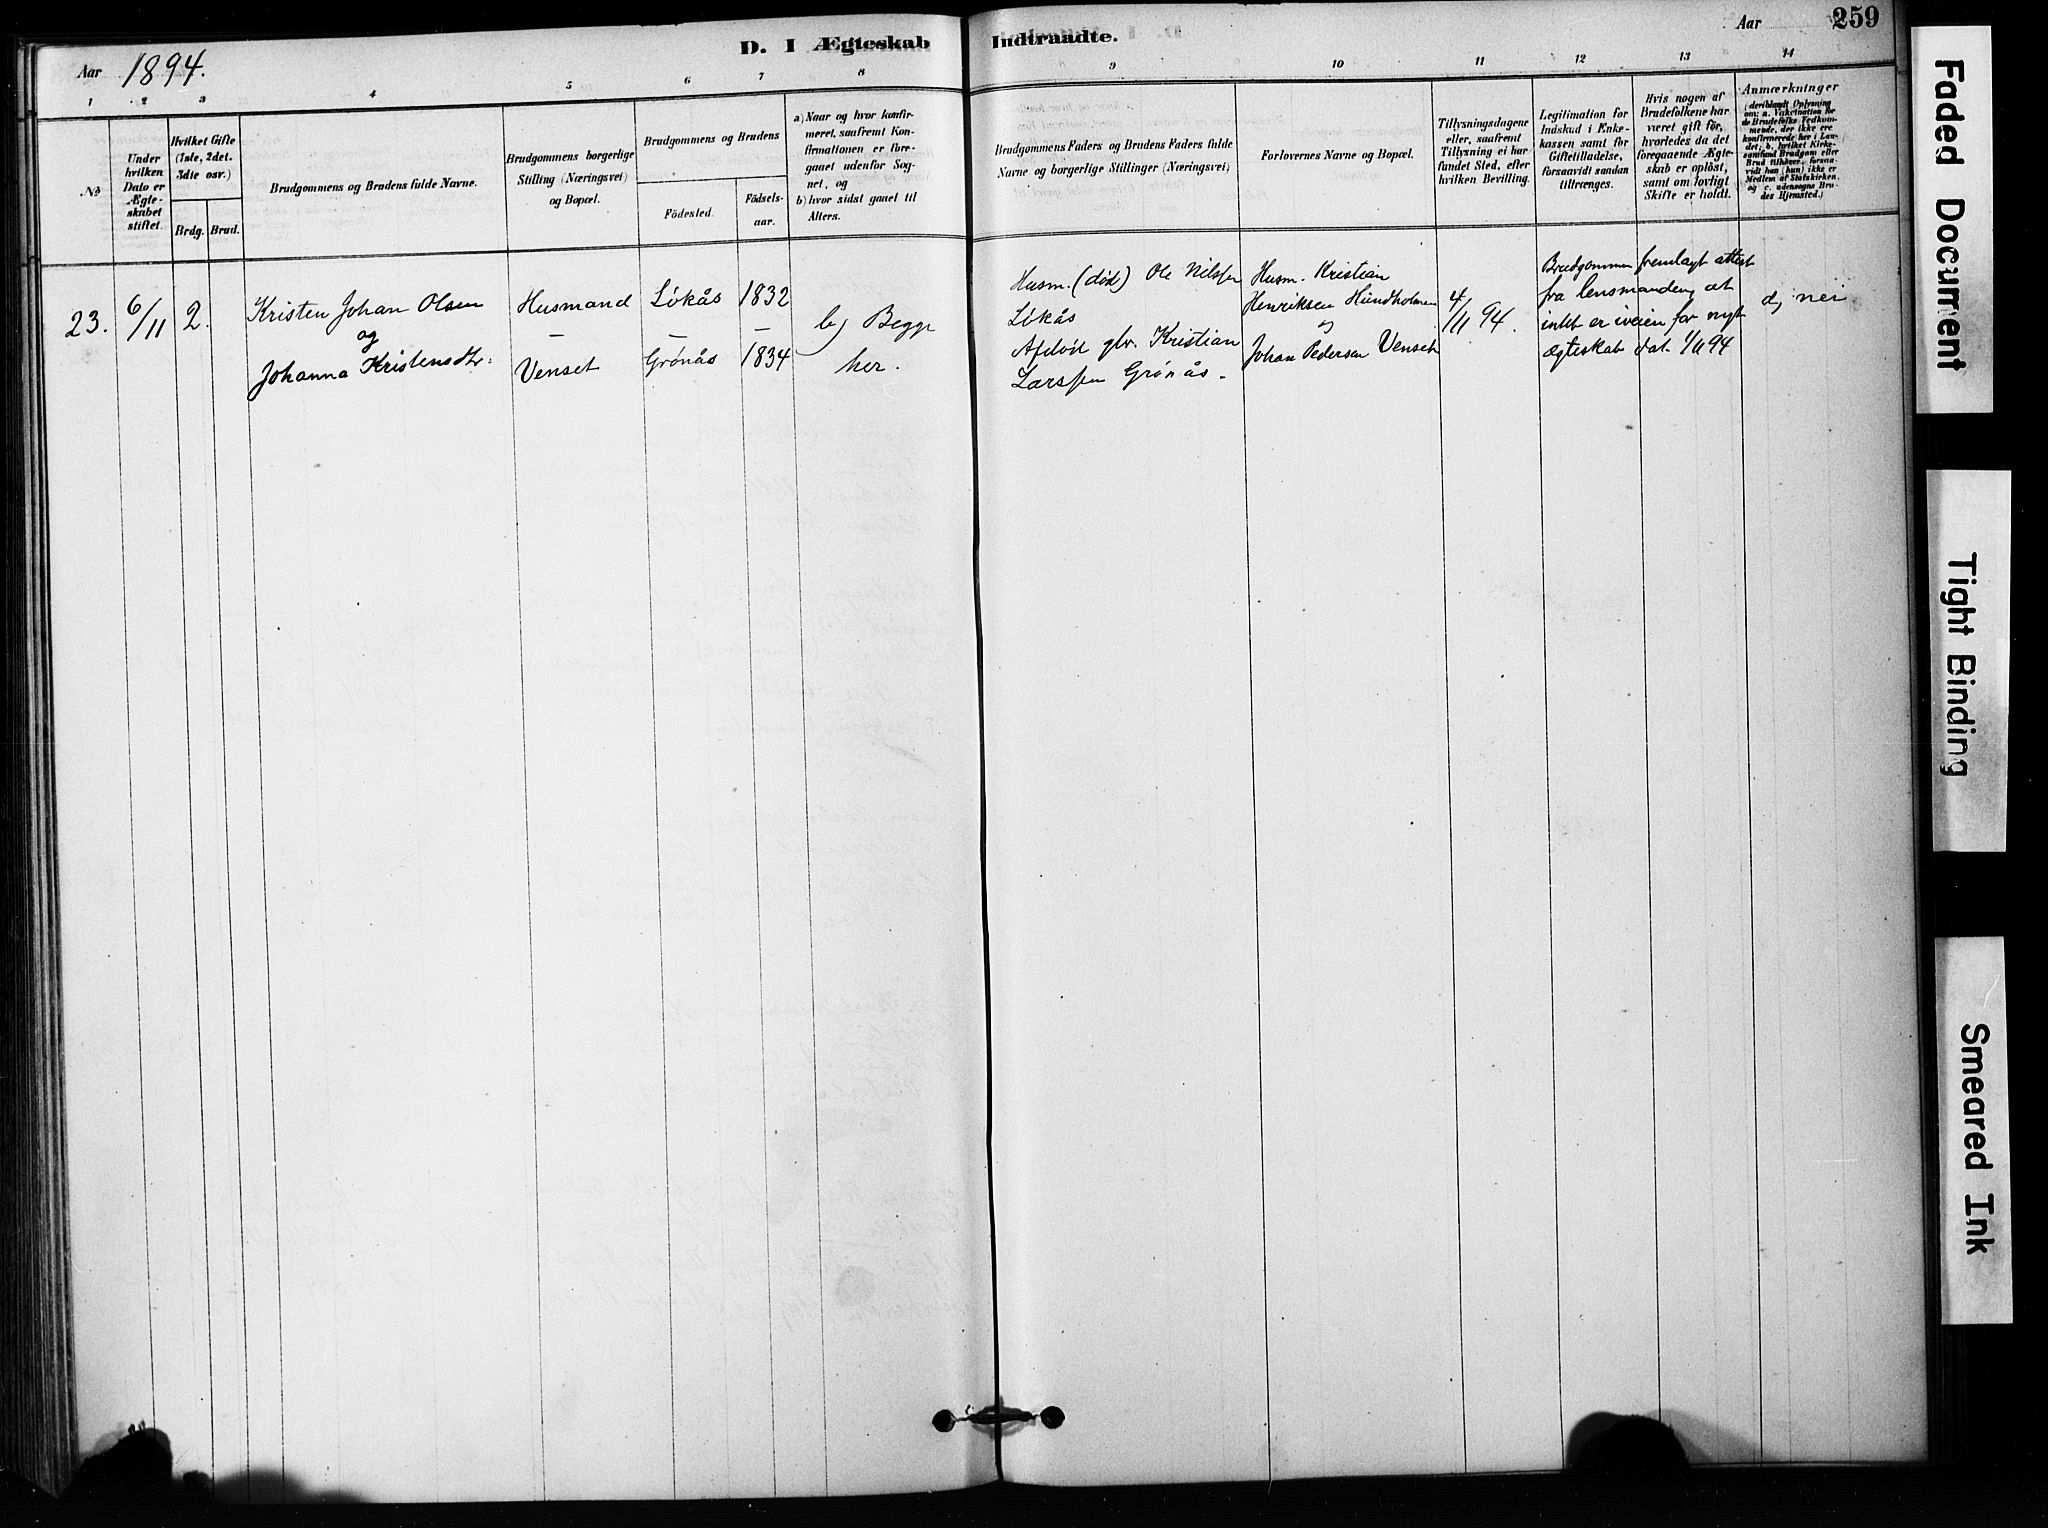 259
D. I Ægteskab Indtraadte.
Aar 1894.
Aar
1 2 3 4 5 6 7 8 9 10 11 12 13 14
No
Under
hvilken
Dato er
Ægte-
skabet
stiftet.
Hvilket Gifte
(1ste, 2det.
3die osv.)
Brdg. Brud.
Brudgommens og Brudens fulde Navne.
Brudgommens borgerlige
Stilling (Næringsvei)
og Bopæl.
Brudgommens og Brudens
Födested.
Födsels-
aar.
a) Naar og hvor konfir-
meret, saafremt Kon-
firmationen er fore-
gaaet udenfor Sog-
net, og
b) hvor sidst gaaet til
Alters.
Brudgommens Faders og Brudens Faders fulde
Navne og borgerlige Stillinger (Næringsvei)
Forlovernes Navne og Bopæl.
Tillysningsdagene
eller, saafremt
Tillysning ei har
fundet Sted, efter
hvilken Bevilling.
Legitimation for
Indskud i Enke-
kassen samt for
Giftetilladelse,
forsaavidt saadan
tiltrænges.
Hvis nogen af
Brudefolkene har
været gift för,
hvorledes da det
foregaaende Ægte-
skab er oplöst,
samt om lovligt
Skifte er holdt.
Anmærkninger
(deriblandt Oplysning
om: a. Vakcination for
de Brudefolks Vedkom-
mende, der ikke ere
konfirmerede her i Lan-
det; b. hvilket Kirke-
samfund Brudgom eller
Brud tilhører, forsaa-
vidt han (hun) ikke er
Medlem af Statskirken,
og c. udensogns Bru-
des Hjemsted.)
23. 6/11 2.
Kristen Johan Olsen
og
Johanna Kristensdtr.
Husmand
–
Venset
Løkås
–
Grønås
1832
–
1834
b) Begge
her.
Husm. (død) Ole Nilssen
Løkås
Afdød glv. Kristian
Larssen Grønås.
Husm. Kristian
Henriksen Hundholmen
og
Johan Pedersen Venset
4/11 94.
Brudgommen fremlagt attest
fra lensmanden, at
intet er iveien for nyt
ægteskab dat. 1/11 94
d, nei
Faded Document
Tight Binding
Smeared Ink